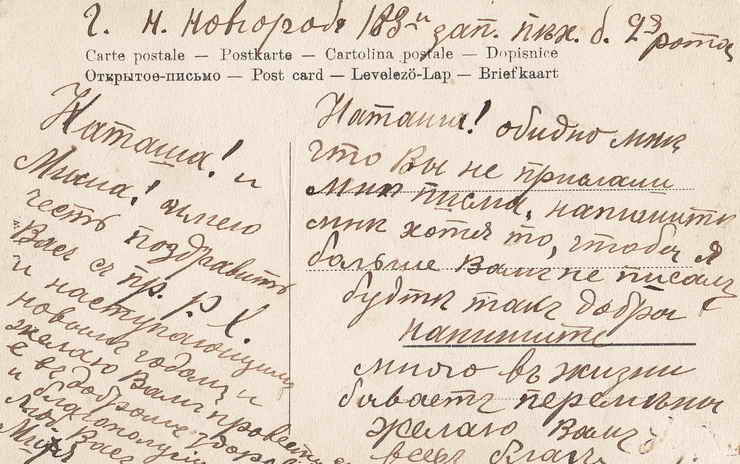 г. Н. Новгородъ 183й зап. пѣх. б. 2я рота
Carte postale – Postkarte – Cartolina postale – Dopisnice
Открытое-письмо – Post card – Levelező-Lap – Briefkaart
Наташа! и
Миша! имею
честь поздравить
Васъ съ пр. Р. Х.
и наступающимъ
новымъ годомъ и
желаю Вамъ провести
въ добромъ
и благополучіи
Васъ
Наташа! обидно мнѣ
что Вы не прислали
мнѣ писма, напишите
мнѣ хотя то, чтобы я
больше Вамъ не писалъ
будте такъ добры
напишите
много въ жизни
бываетъ перемѣны
желаю Вамъ
всехъ благъ